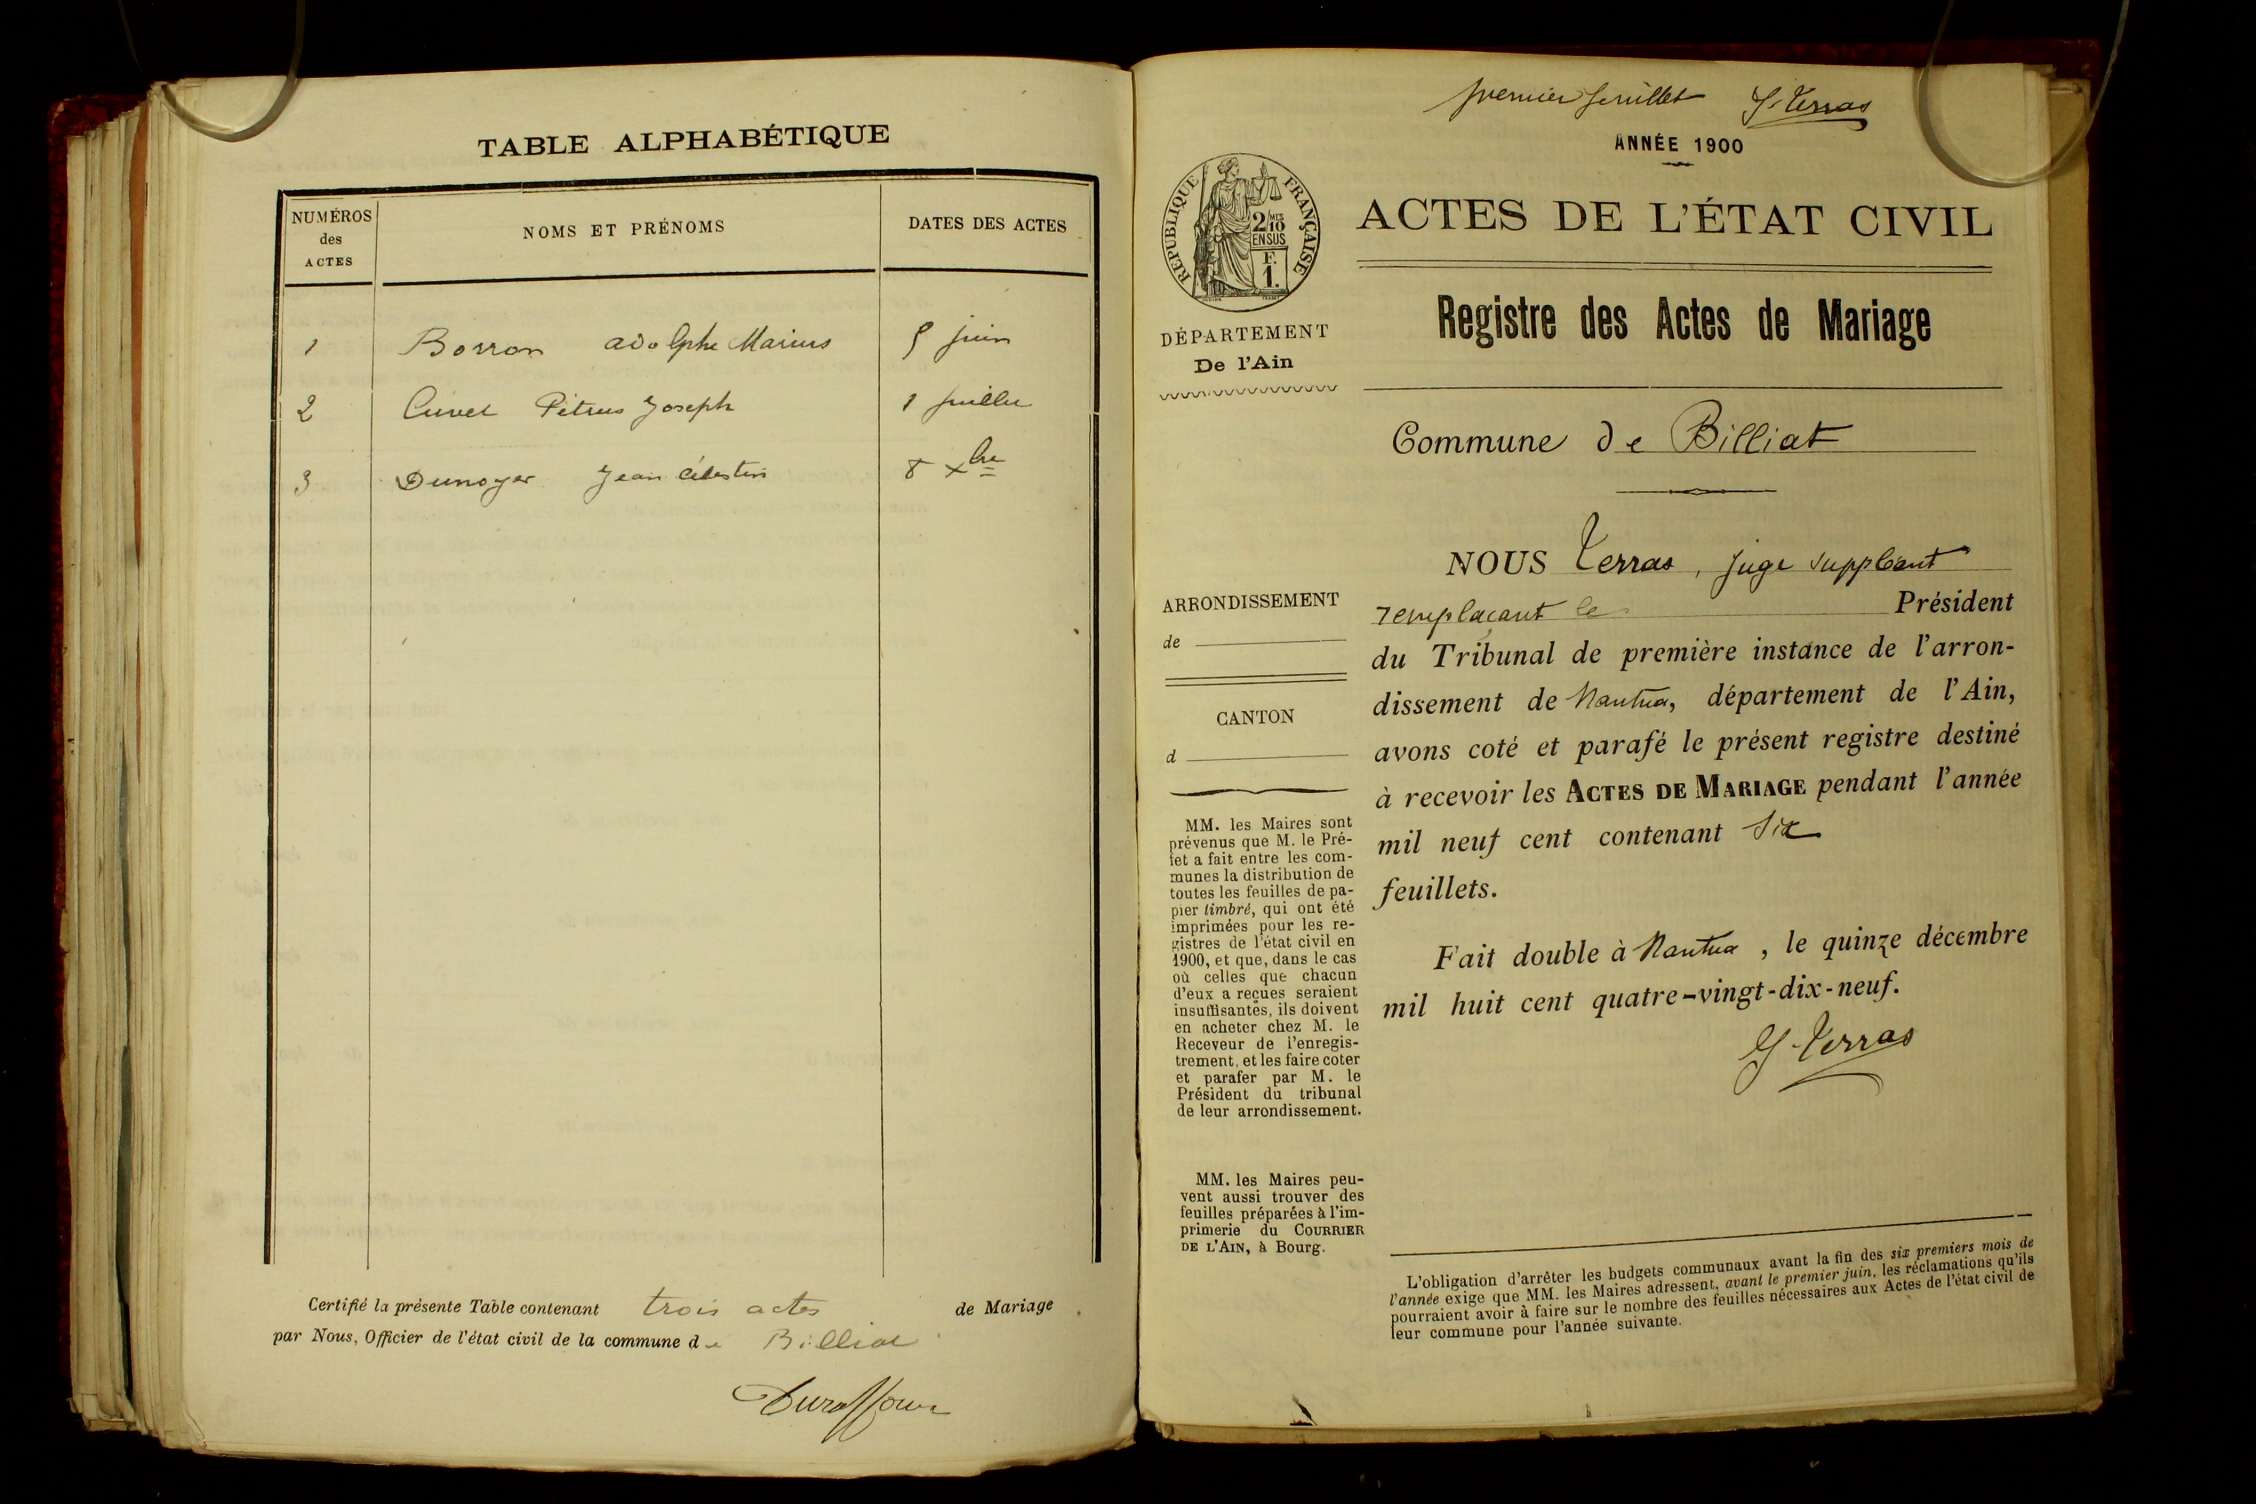 TABLE ALPHABÉTIQUE
NUMÉROS des ACTES
NOMS ET PRÉNOMS
DATES DES ACTES
1 Borron adolphe Marius 5 juin
2 Cuvet Pétrus Joseph 1 juillet
3 Dunoyer Jean Célestin 8 xbre
Certifié la présente Table contenant trois actes de Mariage
par Nous, Officier de l'état civil de la commune de Billiat
Duraffour
premier feuillet G. Terras
ANNÉE 1900
RÉPUBLIQUE FRANÇAISE
2/10 MES
EN SUS
F.
1.
ACTES DE L'ÉTAT CIVIL
Registre des Actes de Mariage
DÉPARTEMENT
De l'Ain
Commune de Billiat
ARRONDISSEMENT
de
CANTON
d
MM. les Maires sont
prévenus que M. le Pré-
fet a fait entre les com-
munes la distribution de
toutes les feuilles de pa-
pier timbré, qui ont été
imprimées pour les re-
gistres de l'état civil en
1900, et que, dans le cas
où celles que chacun
d'eux a reçues seraient
insuffisantes, ils doivent
en acheter chez M. le
Receveur de l'enregis-
trement, et les faire coter
et parafer par M. le
Président du tribunal
de leur arrondissement.
MM. les Maires peu-
vent aussi trouver des
feuilles préparées à l'im-
primerie du COURRIER
DE L'AIN, à Bourg.
NOUS Terras, juge suppléant
remplaçant le Président
du Tribunal de première instance de l'arron-
dissement de Nantua, département de l'Ain,
avons coté et parafé le présent registre destiné
à recevoir les ACTES DE MARIAGE pendant l'année
mil neuf cent contenant six
feuillets.
Fait double à Nantua, le quinze décembre
mil huit cent quatre-vingt-dix-neuf.
G. Terras
L'obligation d'arrêter les budgets communaux avant la fin des six premiers mois de
l'année exige que MM. les Maires adressent, avant le premier juin, les réclamations qu'ils
pourraient avoir à faire sur le nombre des feuilles nécessaires aux Actes de l'état civil de
leur commune pour l'année suivante.